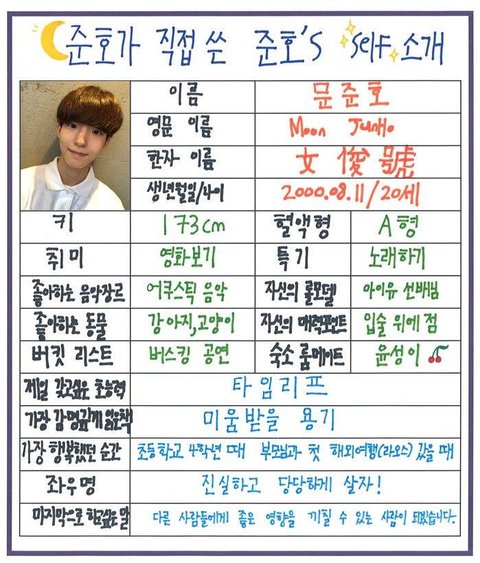 준호가 직접 쓴 준호's self 소개
이름 문준호
영문 이름 Moon JunHo
한자 이름 文俊號
생년월일/나이 2000.08.11/20세
키 173cm 혈액형 A형
취미 영화보기 특기 노래하기
좋아하는 음악장르 어쿠스틱 음악 자신의 롤모델 아이유 선배님
좋아하는 동물 강아지,고양이 자신의 매력포인트 입술 위에 점
버킷 리스트 버스킹 공연 숙소 룸메이트 윤성이
제일 갖고싶은 초능력 타임리프
가장 감명깊게 읽은책 미움받을 용기
가장 행복했던 순간 초등학교 4학년 때 부모님과 첫 해외여행(라오스) 갔을 때
좌우명 진실하고 당당하게 살자!
마지막으로 하고싶은 말 다른 사람들에게 좋은 영향을 끼칠 수 있는 사람이 되겠습니다.